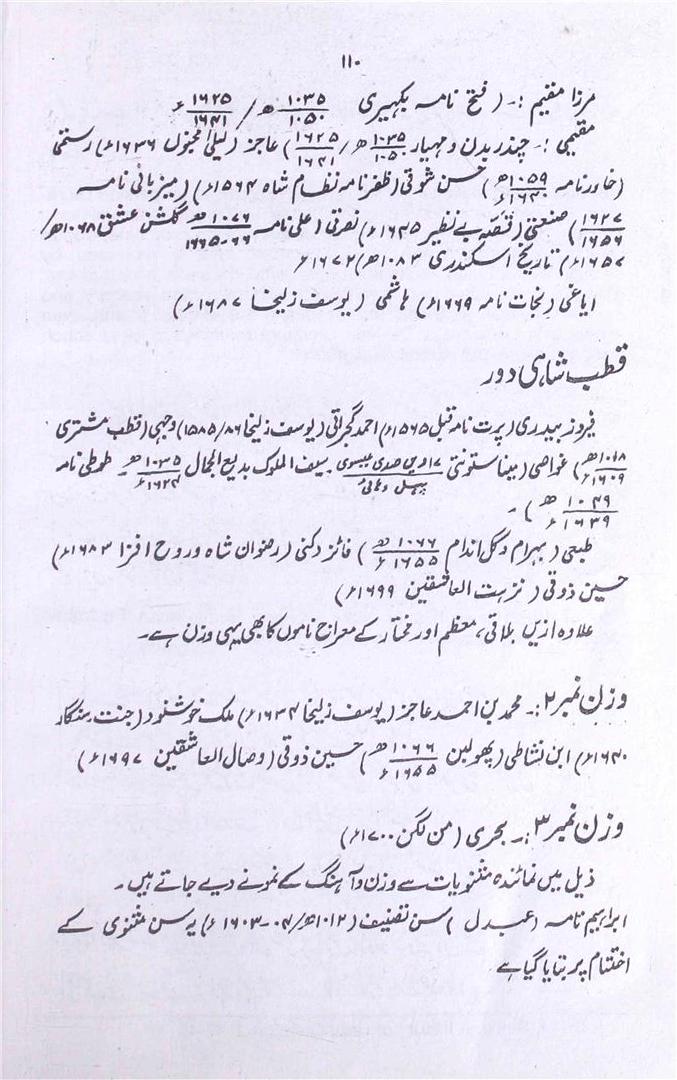 ۱۱۰
مرزا مقیم :۔ ( فتح نامہ بکھیری ۱۰۳۵/۱۰۵۰ھ / ۱۶۲۵/۱۶۴۱ء
مقیمی :۔ چندر بدن و مہیار ۱۰۳۵/۱۰۵۰ھ / ۱۶۲۵/۱۶۴۱) عاجز (لیلیٰ مجنوں ۱۶۳۶ء) رستمی
(خاور نامہ ۱۰۵۹ھ/۱۶۴۰ء) حسن شوقی (ظفر نامہ نظام شاہ ۱۵۶۴ء) (میزبانی نامہ
۱۶۲۷/۱۶۵۶) صنعتی (قصّہ بے نظیر ۱۶۴۵ء) نصرتی (علی نامہ ۱۰۷۶ھ/۶۶-۱۶۶۵ء گلشن عشق ۱۰۶۸ھ/
۱۶۵۷ء) تاریخ اسکندری ۱۰۸۳ھ) ۱۶۷۲ء
ایاغی (نجات نامہ ۱۶۶۹ء) ہاشمی (یوسف زلیخا ۱۶۸۷ء)
قطب شاہی دور
فیروز بیدری (پرت نامہ قبل ۱۵۶۵ء) احمد گجراتی (یوسف زلیخا ۱۵۸۵/۸۶) وجہی (قطب مشتری
۱۰۱۸ھ/۱۶۰۹ء) غواصی (مینا ستونتی ۱۷ویں صدی عیسوی/پہلی دہائی سیف الملوک بدیع الجمال ۱۰۳۵ھ/۱۶۲۴ء۔ طوطی نامہ
۱۰۴۹ھ/۱۶۳۹ء)۔
طبعی (بہرام و گل اندام ۱۰۶۶ھ/۱۶۵۵ء) فائز دکنی (رضوان شاہ و روح افزا ۱۶۸۳ء)
حسین ذوقی (نزہت العاشقین ۱۶۹۹ء)
علاوہ ازیں بلاقی، معظم اور مختار کے معراج ناموں کا بھی یہی وزن ہے۔
وزن نمبر ۲:۔ محمد بن احمد عاجز (یوسف زلیخا ۱۶۳۴ء) ملک خوشنود (جنت سنگار
۱۶۴۰ء) ابن نشاطی (پھولبن ۱۰۶۶ھ/۱۶۵۵ء) حسین ذوقی (وصال العاشقین ۱۶۹۷ء)
وزن نمبر ۳:۔ بحری (من لگن ۱۷۰۰ء)
ذیل میں نمائندہ مثنویات سے وزن و آہنگ کے نمونے دیے جاتے ہیں۔
ابراہیم نامہ (عبدل) سن تصنیف (۱۰۱۲ھ/۰۴-۱۶۰۳ء) یہ سن مثنوی کے
اختتام پر بتایا گیا ہے